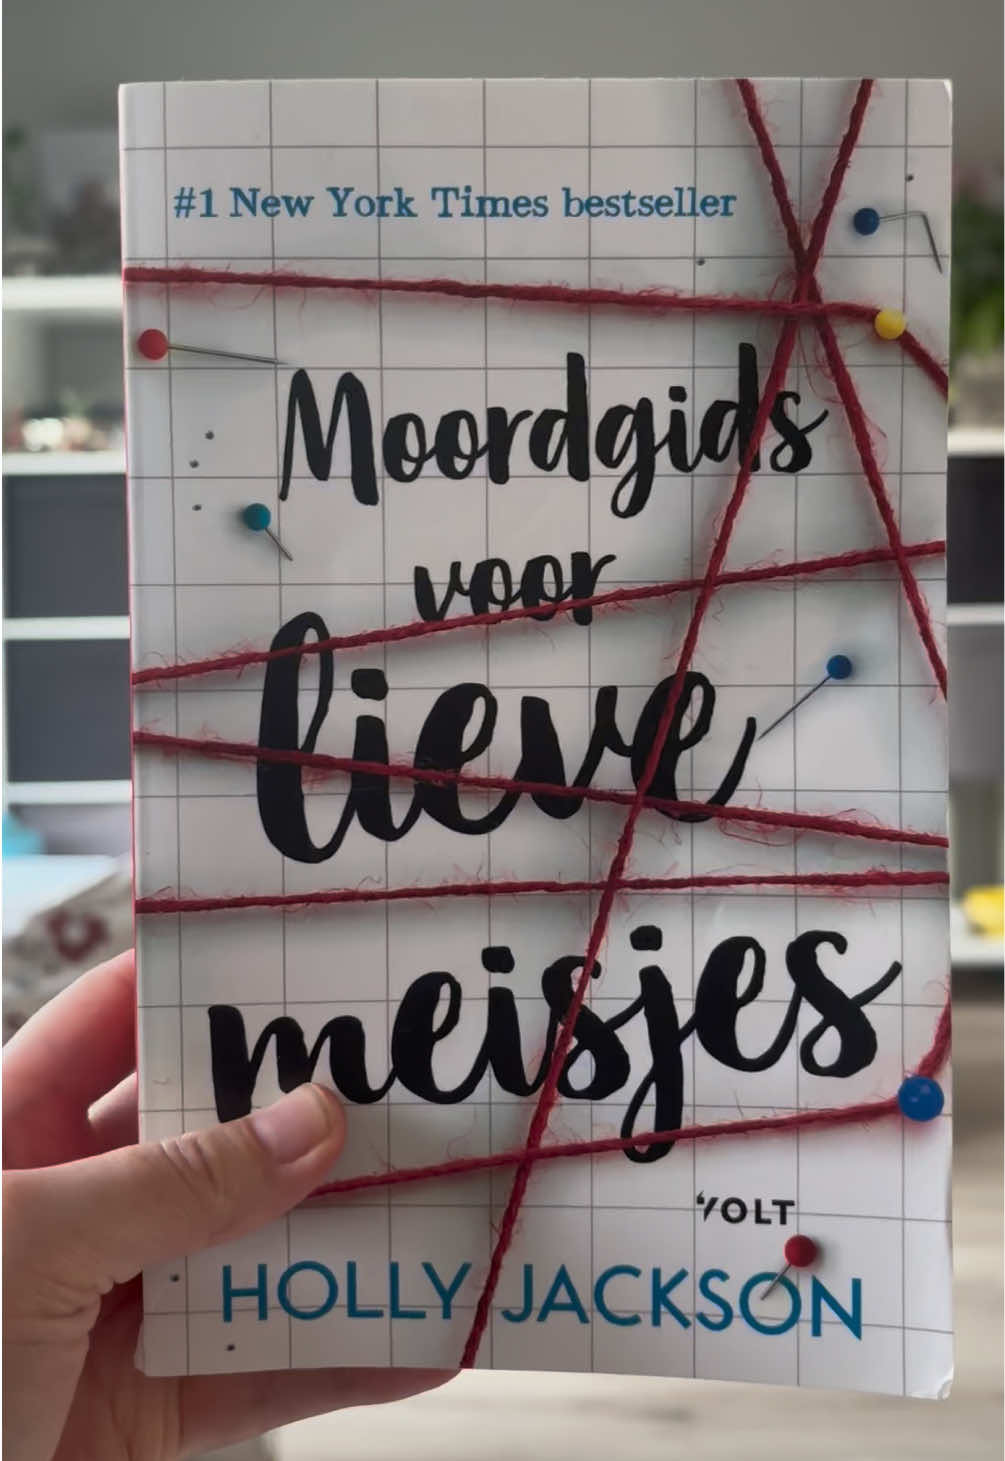 #1 New York Times bestseller
Moordgids
voor
lieve
meisjes
VOLT
HOLLY JACKSON